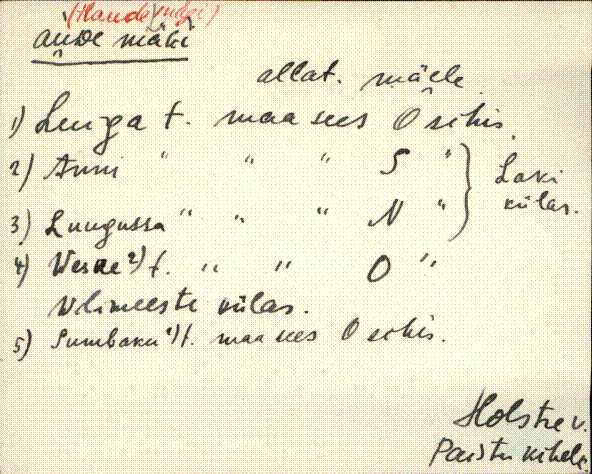 (Haude mägi)
aude mäki
allat. mäele
1) Leuga t. maa sees O sihis.
2) Anni " " " S "
Laki
külas.
3) Luugussa " " " N "
4) Weske²) t. " " O "
Wõlimeeste külas.
5) Sumbaku²) t. maa sees O sihis.
Holstre v.
Paistu kihelk.